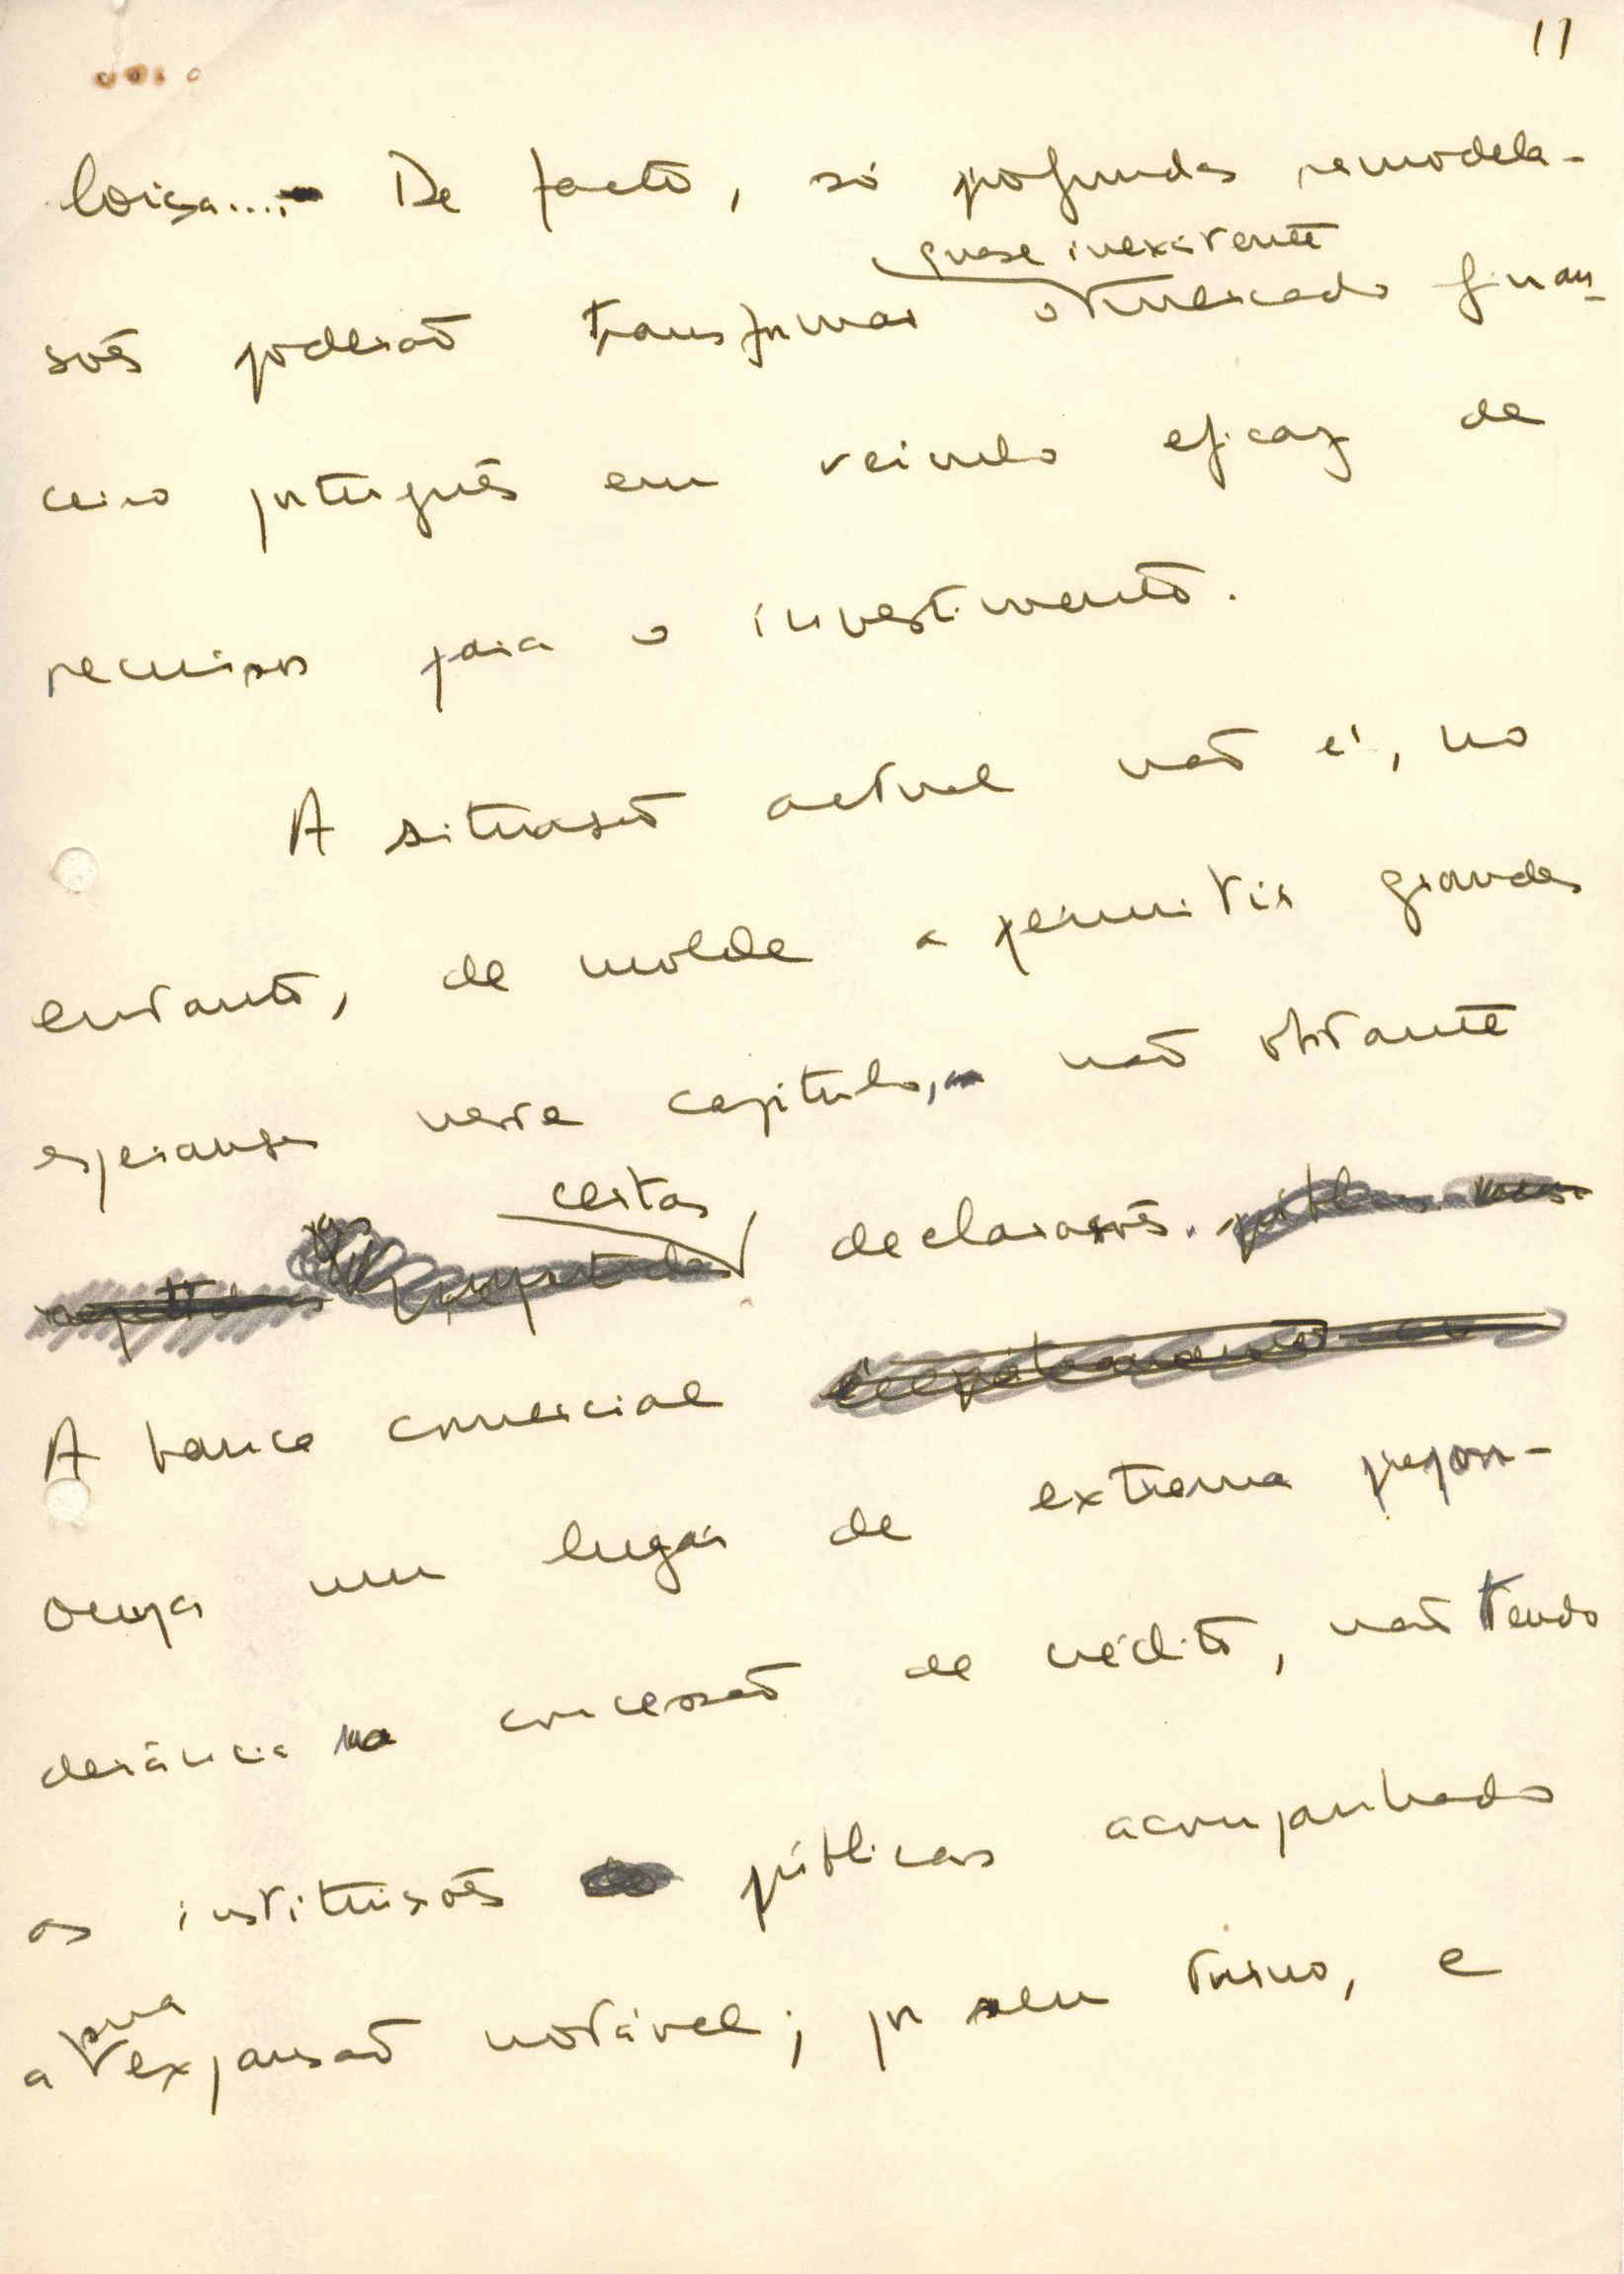 11
Coisa.... De facto, só profundas remodela-
quase inexistente
ções poderão transformar o mercado finan-
ceiro português em veículo eficaz de
recursos para o investimento.
A situação actual não é, no
entanto, de molde a permitir grandes
esperanças nesse capítulo, não obstante
certas
declarações.
A banca comercial
ocupa um lugar de extrema prepon-
derância na concessão de crédito, não tendo
as instituições públicas acompanhado
sua
a expansão notável; por seu turno, e